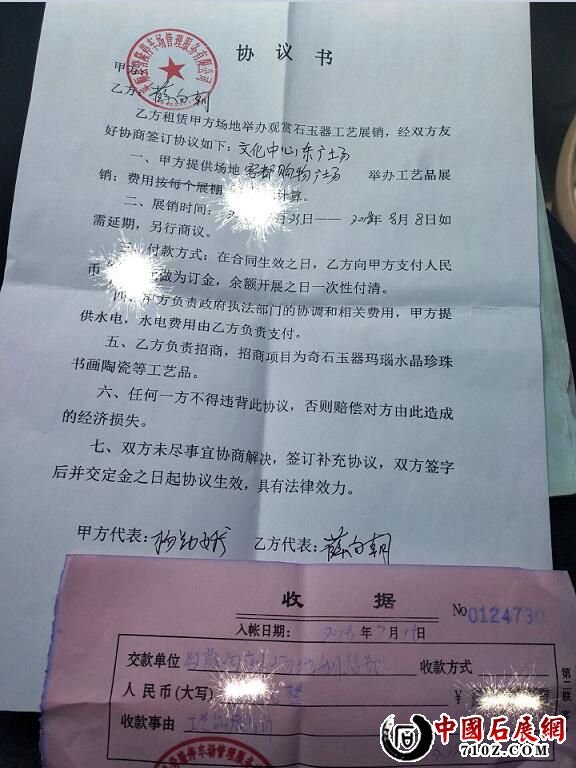 协议书
甲方:
停车场管理服务有限公司
乙方: 薛向朝
乙方租赁甲方场地举办观赏石玉器工艺展销,经双方友
好协商签订协议如下: 文化中心东广场
一、甲方提供场地 客都购物广场 举办工艺品展
销;费用按每个展棚 计算。
二、展销时间: 31日—— 2018年8月8日如
需延期,另行商议。
三、付款方式:在合同生效之日,乙方向甲方支付人民
币 做为订金,余额开展之日一次性付清。
四、甲方负责政府执法部门的协调和相关费用,甲方提
供水电,水电费用由乙方负责支付。
五、乙方负责招商,招商项目为奇石玉器玛瑙水晶珍珠
书画陶瓷等工艺品。
六、任何一方不得违背此协议,否则赔偿对方由此造成
的经济损失。
七、双方未尽事宜协商解决,签订补充协议,双方签字
后并交定金之日起协议生效,具有法律效力。
甲方代表: 乙方代表: 薛向朝
收据
No 0124730
入帐日期: 2018年7月1日
交款单位 收款方式
人民币(大写) 整 ¥
收款事由 工艺品
第二联
停车场管理服务
中國石展網
710Z.COM